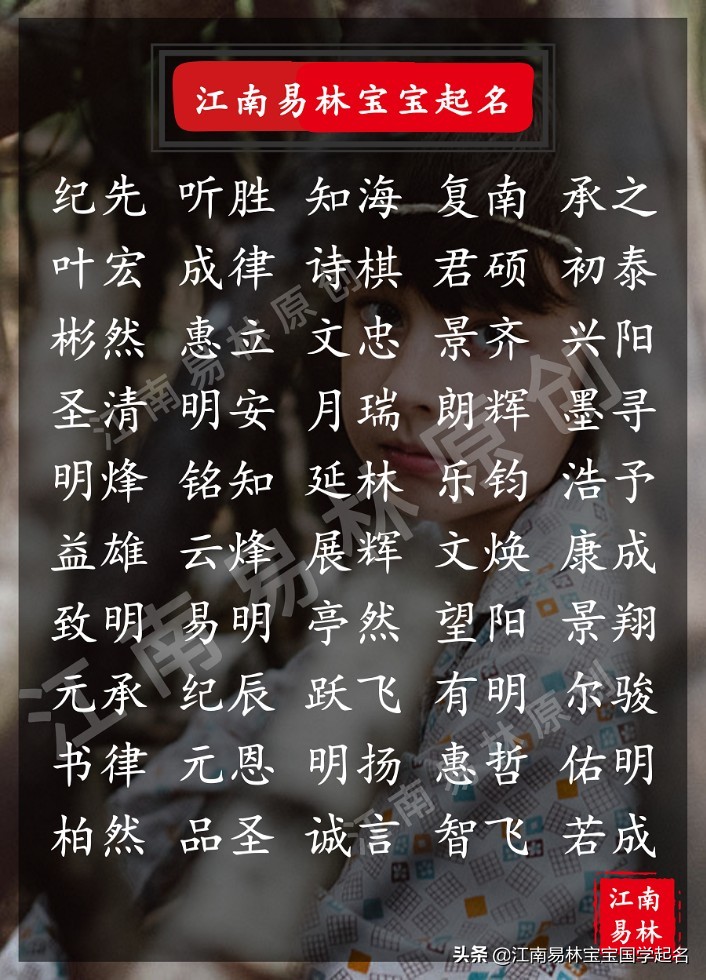 江南易林宝宝起名
纪先 听胜 知海 复南 承之
叶宏 成律 诗棋 君硕 初泰
彬然 惠立 文忠 景齐 兴阳
圣清 明安 月瑞 朗辉 墨寻
明烽 铭知 延林 乐钧 浩予
益雄 云烽 展辉 文焕 康成
致明 易明 亭然 望阳 景翔
元承 纪辰 跃飞 有明 尔骏
书律 元恩 明扬 惠哲 佑明
柏然 品圣 诚言 智飞 若成
江南易林原创
江南易林原创
江南易林原创
江南
易林
头条 @江南易林宝宝国学起名